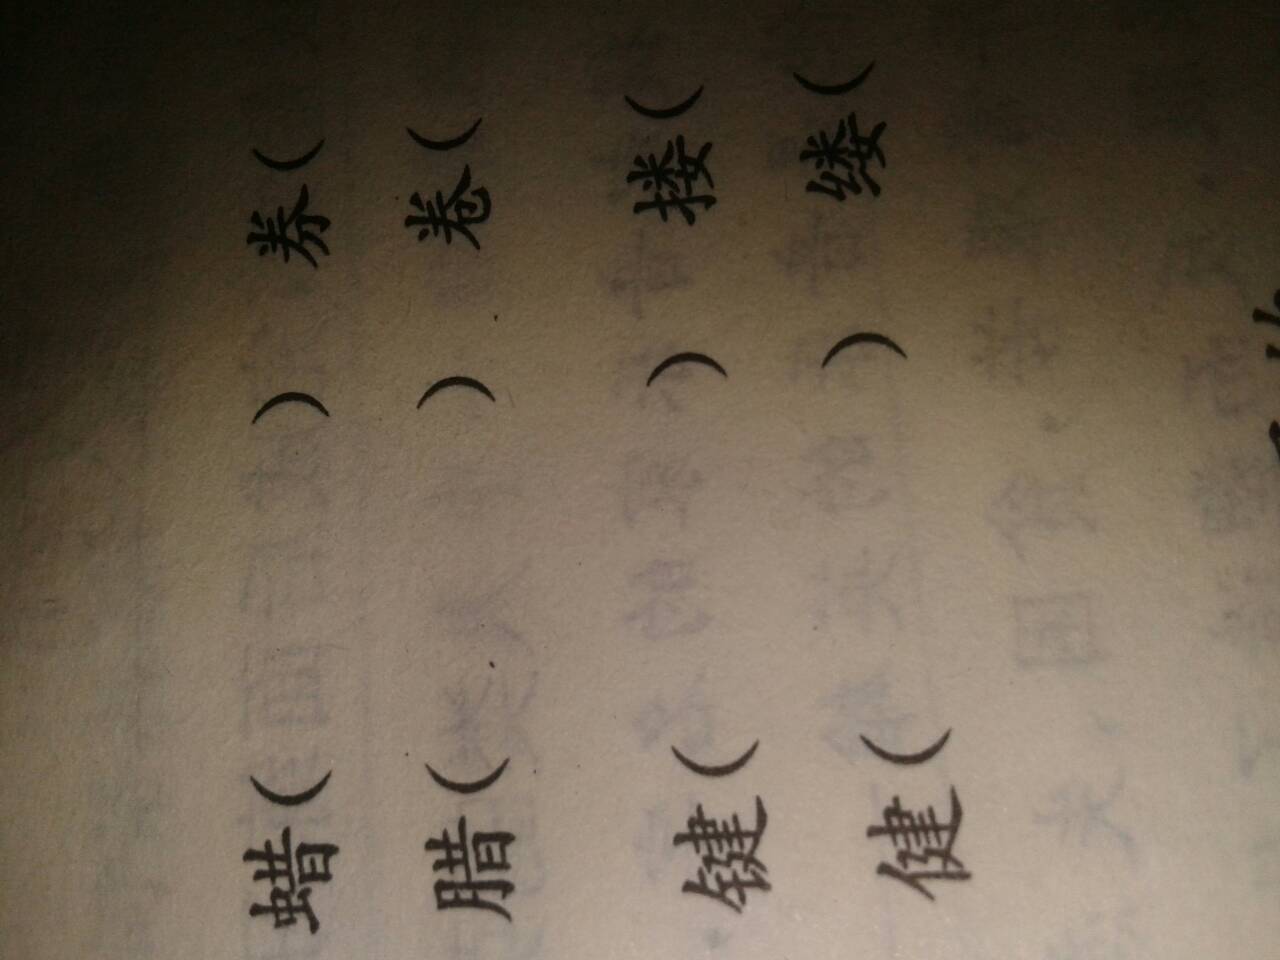 蜡( ) 券(
腊( ) 卷(
键( ) 搂(
健( ) 缕(